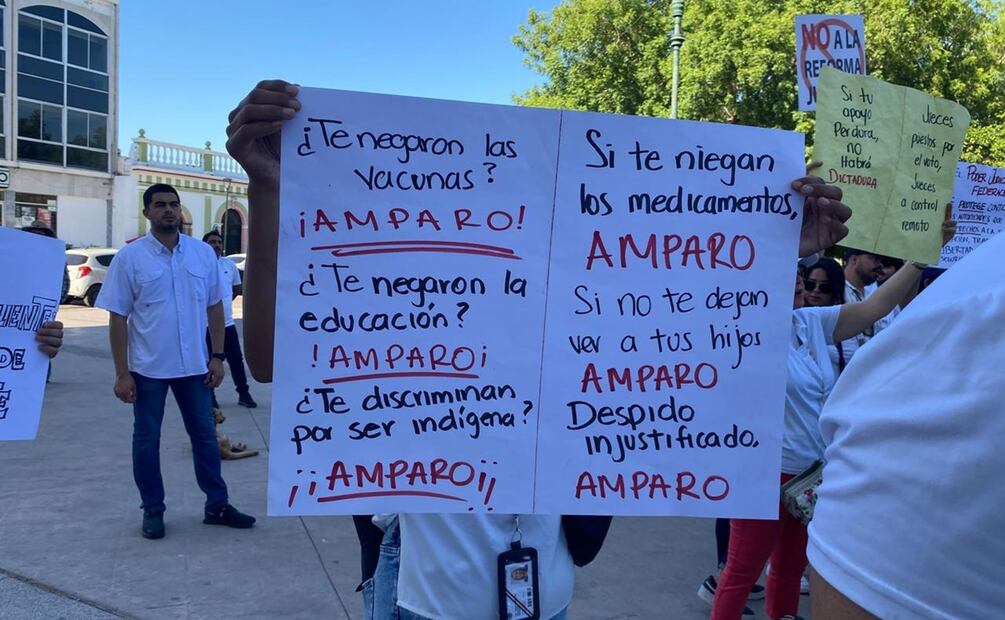 ¿Te negaron las
vacunas?
¡AMPARO!
¿Te negaron la
educación?
!AMPARO¡
¿Te discriminan
por ser indígena?
¡¡AMPARO¡¡
Si te niegan
los medicamentos,
AMPARO
Si no te dejan
ver a tus hijos
AMPARO
Despido
injustificado,
AMPARO
NO A LA
REFORMA
Si tu
apoyo
Perdura,
no
Habrá
DICTADURA
Jueces
puestos por
el voto,
Jueces
a control
remoto
PODER
FEDERAC
PROTEGE
DE